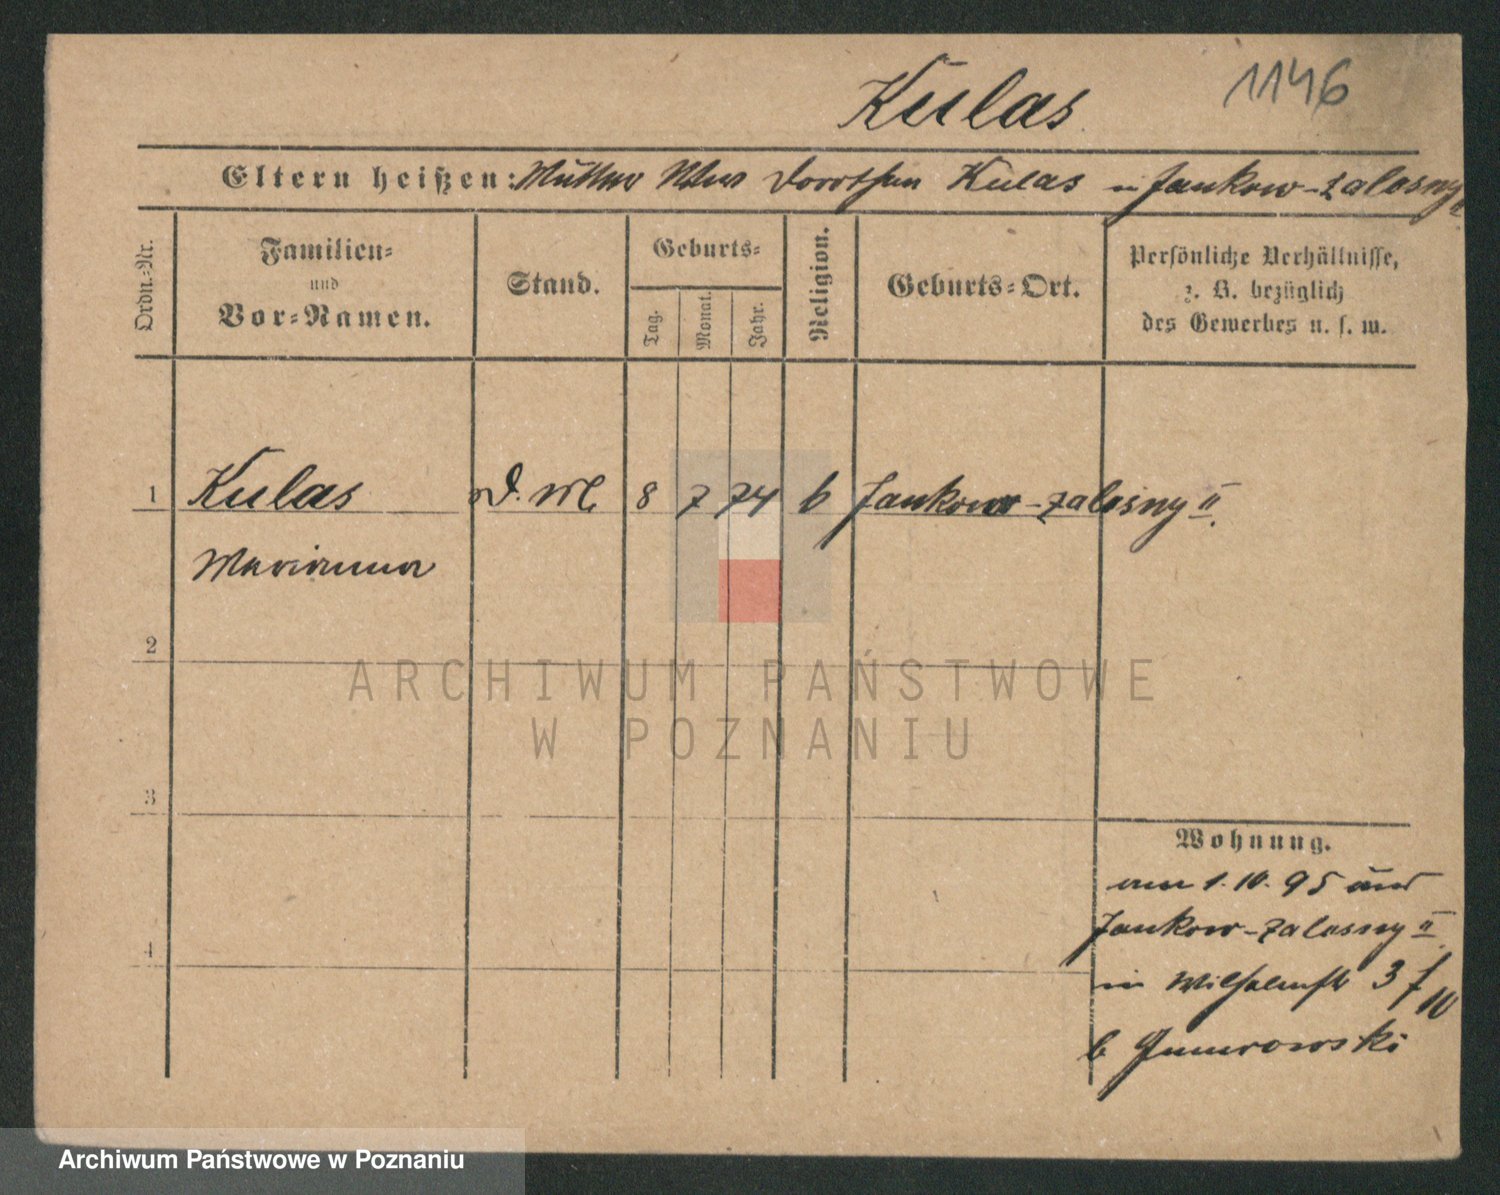 Kulas 1146
Eltern heißen: Mutter Wwe Dorothea Kulas in Jankow-zalesny II
Ordn.-Nr.
Familien-
und
Vor-Namen.
Stand.
Geburts-
Tag.
Monat.
Jahr.
Religion.
Geburts-Ort.
Persönliche Verhältnisse,
z. B. bezüglich
des Gewerbes u. s. w.
1 Kulas D. M 8 7 74 k Jankow-zalesny II.
Marianna
2
3
4
Wohnung.
am 1.10.95 aus
Jankow-zalesny II.
in Wilhelmstr 3
b
ARCHIWUM PAŃSTWOWE
W POZNANIU
Archiwum Państwowe w Poznaniu